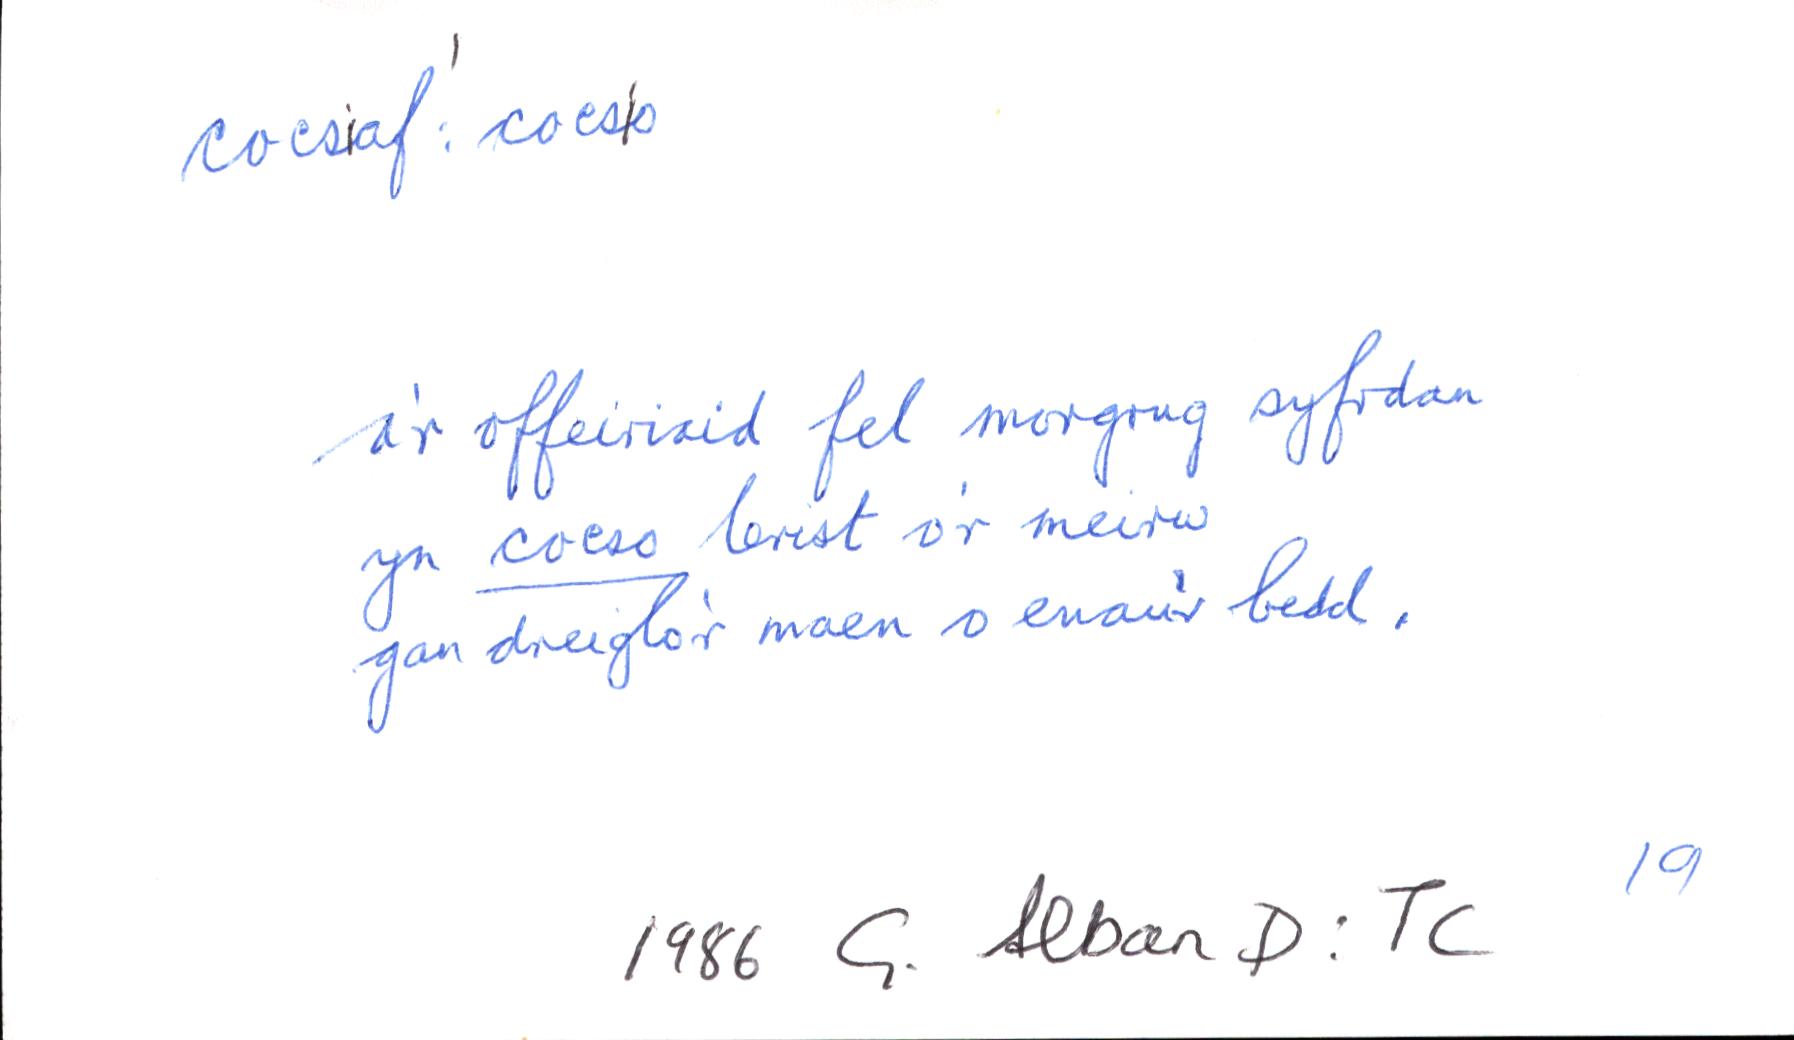 cocsiaf¹: cocsio
a'r offeiriaid fel morgrug syfrdan
yn cocso Crist o'r meirw
gan dreiglo'r maen o enau'r bedd.
19
1986 G. Alban D: TC